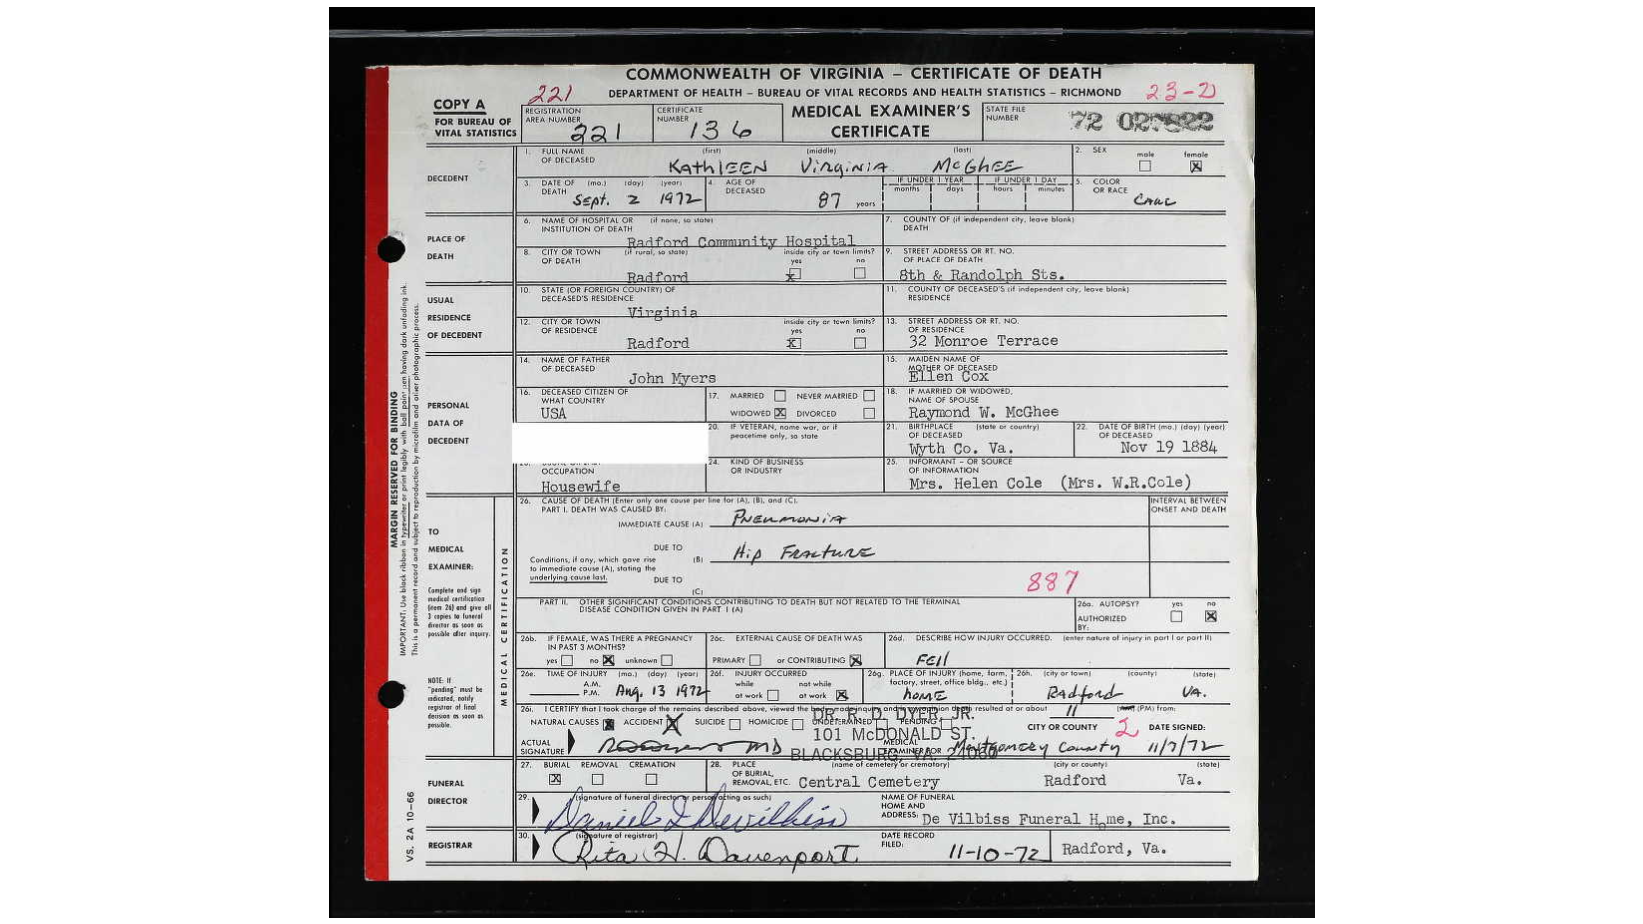 COMMONWEALTH OF VIRGINIA – CERTIFICATE OF DEATH
DEPARTMENT OF HEALTH – BUREAU OF VITAL RECORDS AND HEALTH STATISTICS – RICHMOND
221
23-2
COPY A
FOR BUREAU OF VITAL STATISTICS
REGISTRATION AREA NUMBER 221
CERTIFICATE NUMBER 136
MEDICAL EXAMINER'S CERTIFICATE
STATE FILE NUMBER 72
DECEDENT
1. FULL NAME OF DECEASED (first) (middle) (last)
Kathleen Virginia McGhee
2. SEX male female X
3. DATE OF DEATH (mo.) (day) (year) Sept. 2 1972
4. AGE OF DECEASED 87 years
IF UNDER 1 YEAR months days IF UNDER 1 DAY hours minutes
5. COLOR OR RACE Cauc
PLACE OF DEATH
6. NAME OF HOSPITAL OR INSTITUTION OF DEATH (if none, so state)
Radford Community Hospital
7. COUNTY OF DEATH (if independent city, leave blank)
8. CITY OR TOWN OF DEATH (if rural, so state) Radford
inside city or town limits? yes x no
9. STREET ADDRESS OR RT. NO. OF PLACE OF DEATH
8th & Randolph Sts.
USUAL RESIDENCE OF DECEDENT
10. STATE (OR FOREIGN COUNTRY) OF DECEASED'S RESIDENCE
Virginia
11. COUNTY OF DECEASED'S RESIDENCE (if independent city, leave blank)
12. CITY OR TOWN OF RESIDENCE Radford
inside city or town limits? yes X no
13. STREET ADDRESS OR RT. NO. OF RESIDENCE
32 Monroe Terrace
PERSONAL DATA OF DECEDENT
14. NAME OF FATHER OF DECEASED
John Myers
15. MAIDEN NAME OF MOTHER OF DECEASED
Ellen Cox
16. DECEASED CITIZEN OF WHAT COUNTRY
USA
17. MARRIED NEVER MARRIED
WIDOWED X DIVORCED
18. IF MARRIED OR WIDOWED, NAME OF SPOUSE
Raymond W. McGhee
20. IF VETERAN, name war, or if peacetime only, so state
21. BIRTHPLACE OF DECEASED (state or country)
Wyth Co. Va.
22. DATE OF BIRTH OF DECEASED (mo.) (day) (year)
Nov 19 1884
OCCUPATION
Housewife
24. KIND OF BUSINESS OR INDUSTRY
25. INFORMANT – OR SOURCE OF INFORMATION
Mrs. Helen Cole (Mrs. W.R.Cole)
TO MEDICAL EXAMINER:
Complete and sign medical certification (item 26) and give all 3 copies to funeral director as soon as possible after inquiry.
NOTE: If "pending" must be indicated, notify registrar of final decision as soon as possible.
MEDICAL CERTIFICATION
26. CAUSE OF DEATH (Enter only one cause per line for (A), (B), and (C).
PART I. DEATH WAS CAUSED BY:
INTERVAL BETWEEN ONSET AND DEATH
IMMEDIATE CAUSE (A) Pneumonia
DUE TO
Conditions, if any, which gave rise to immediate cause (A), stating the underlying cause last.
(B) Hip Fracture
DUE TO
(C)
887
PART II. OTHER SIGNIFICANT CONDITIONS CONTRIBUTING TO DEATH BUT NOT RELATED TO THE TERMINAL DISEASE CONDITION GIVEN IN PART I (A)
26a. AUTOPSY? yes no X
AUTHORIZED BY:
26b. IF FEMALE, WAS THERE A PREGNANCY IN PAST 3 MONTHS?
yes no X unknown
26c. EXTERNAL CAUSE OF DEATH WAS
PRIMARY or CONTRIBUTING X
26d. DESCRIBE HOW INJURY OCCURRED. (enter nature of injury in part I or part II)
Fell
26e. TIME OF INJURY (mo.) (day) (year)
A.M. P.M. Aug. 13 1972
26f. INJURY OCCURRED
while at work not while at work X
26g. PLACE OF INJURY (home, farm, factory, street, office bldg., etc.)
home
26h. (city or town) (county) (state)
Radford VA.
26i. I CERTIFY that I took charge of the remains described above, viewed the body, made inquiry and in my opinion death resulted at or about 11 (PM) from:
NATURAL CAUSES X ACCIDENT X SUICIDE HOMICIDE UNDETERMINED PENDING
DR. R. D. DYER, JR.
101 McDONALD ST.
BLACKSBURG, VA. 24060
ACTUAL SIGNATURE MD
MEDICAL EXAMINER FOR
CITY OR COUNTY
Montgomery County
DATE SIGNED:
11/7/72
FUNERAL DIRECTOR
27. BURIAL X REMOVAL CREMATION
28. PLACE OF BURIAL, REMOVAL, ETC. (name of cemetery or crematory) (city or county) (state)
Central Cemetery Radford Va.
29. (signature of funeral director or person acting as such)
Daniel I Devilbiss
NAME OF FUNERAL HOME AND ADDRESS: De Vilbiss Funeral Home, Inc.
Radford, Va.
REGISTRAR
30. (signature of registrar)
Rita H. Davenport
DATE RECORD FILED: 11-10-72
MARGIN RESERVED FOR BINDING
IMPORTANT. Use black ribbon in typewriter or print legibly with ball point pen having dark unfading ink.
This is a permanent record and subject to reproduction by microfilm and other photographic process.
VS. 2A 10–66